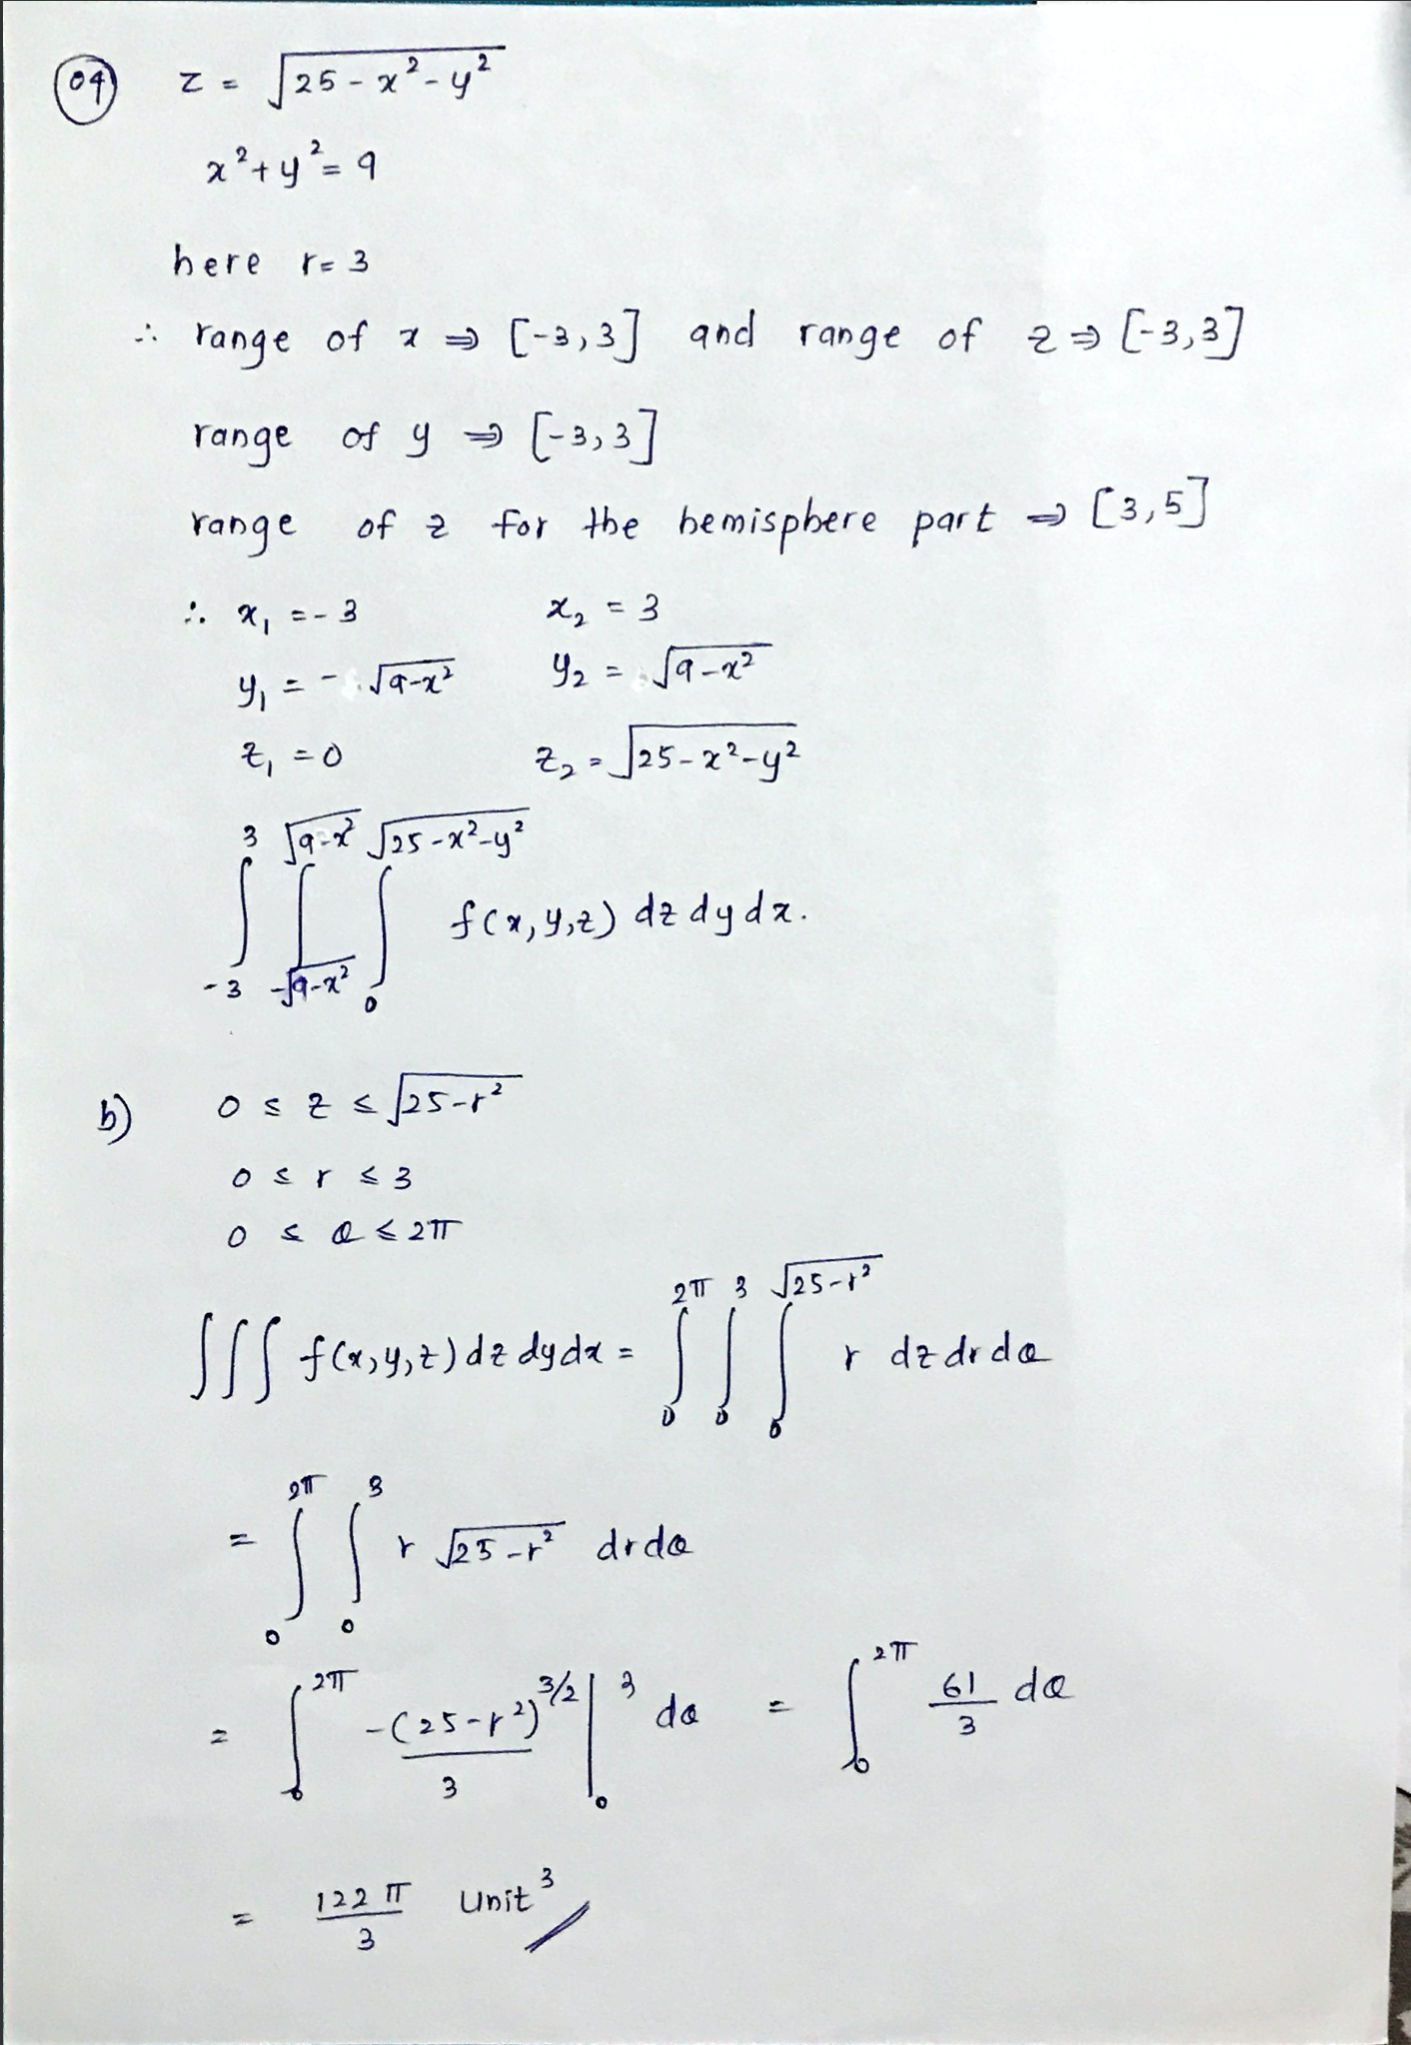 04 z = √(25 - x² - y²)
x² + y² = 9
here r = 3
∴ range of x ⇒ [-3, 3] and range of z ⇒ [-3, 3]
range of y ⇒ [-3, 3]
range of z for the hemisphere part ⇒ [3, 5]
∴ x₁ = -3 x₂ = 3
y₁ = -√(9-x²) y₂ = √(9-x²)
z₁ = 0 z₂ = √(25-x²-y²)
∫_{-3}^{3} ∫_{-√(9-x²)}^{√(9-x²)} ∫_{0}^{√(25-x²-y²)} f(x,y,z) dz dy dx.
b) 0 ≤ z ≤ √(25-r²)
0 ≤ r ≤ 3
0 ≤ θ ≤ 2π
∫∫∫ f(x,y,z) dz dy dx = ∫_{0}^{2π} ∫_{0}^{3} ∫_{0}^{√(25-r²)} r dz dr dθ
= ∫_{0}^{2π} ∫_{0}^{3} r √(25-r²) dr dθ
= ∫_{0}^{2π} -(25-r²)^{3/2}/3 |_{0}^{3} dθ = ∫_{0}^{2π} 61/3 dθ
= 122π/3 Unit³